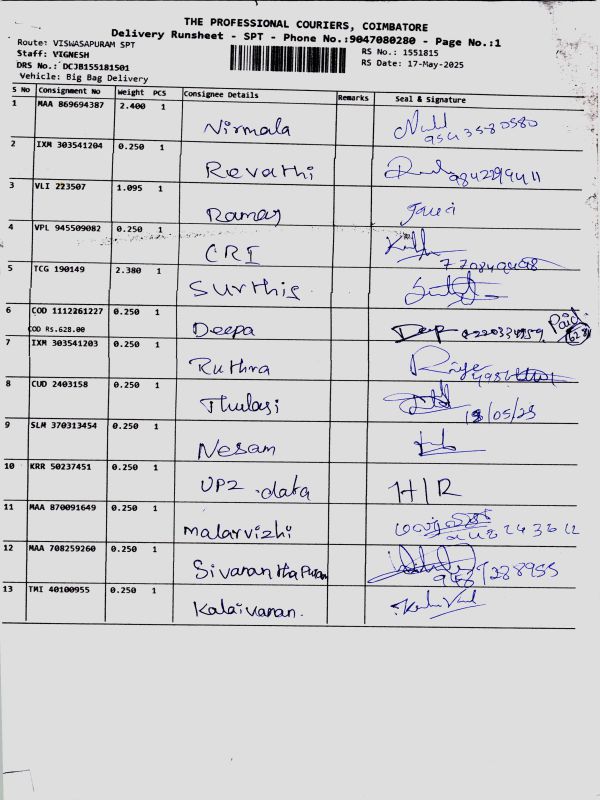 THE PROFESSIONAL COURIERS, COIMBATORE
Delivery Runsheet - SPT - Phone No.:9047080280 - Page No.:1
Route: VISWASAPURAM SPT
Staff: VIGNESH
DRS No.: DCJB155181501
Vehicle: Big Bag Delivery
RS No.: 1551815
RS Date: 17-May-2025
S No Consignment No Weight PCS Consignee Details Remarks Seal & Signature
1 MAA 869694387 2.400 1
Nirmala 9543580580
2 IXM 303541204 0.250 1
Revathi 9842299411
3 VLI 223507 1.095 1
Ramay
4 VPL 945509082 0.250 1
CRI
5 TCG 190149 2.380 1
Surthis
6 COD 1112261227 0.250 1
COD Rs.628.00
Deepa Deep Paid 628
7 IXM 303541203 0.250 1
Ruthra
8 CUD 2403158 0.250 1
Thulasi 18/05/25
9 SLM 370313454 0.250 1
Nesam
10 KRR 50237451 0.250 1
UPZ .data H/R
11 MAA 870091649 0.250 1
malarvizhi
12 MAA 708259260 0.250 1
9487288955
13 TMI 40100955 0.250 1
Kalaivanan.